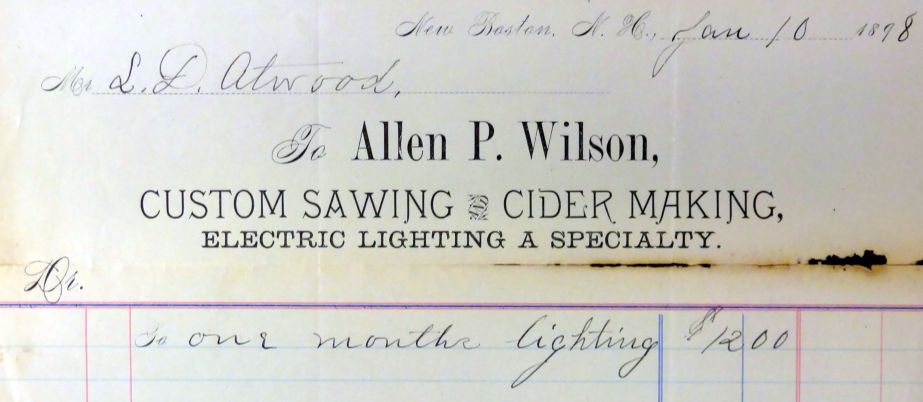 New Boston, N. H., Jan 10 1898
Mr L. D. Atwood,
To Allen P. Wilson,
CUSTOM SAWING AND CIDER MAKING,
ELECTRIC LIGHTING A SPECIALTY.
Dr.
To one months lighting $12 00